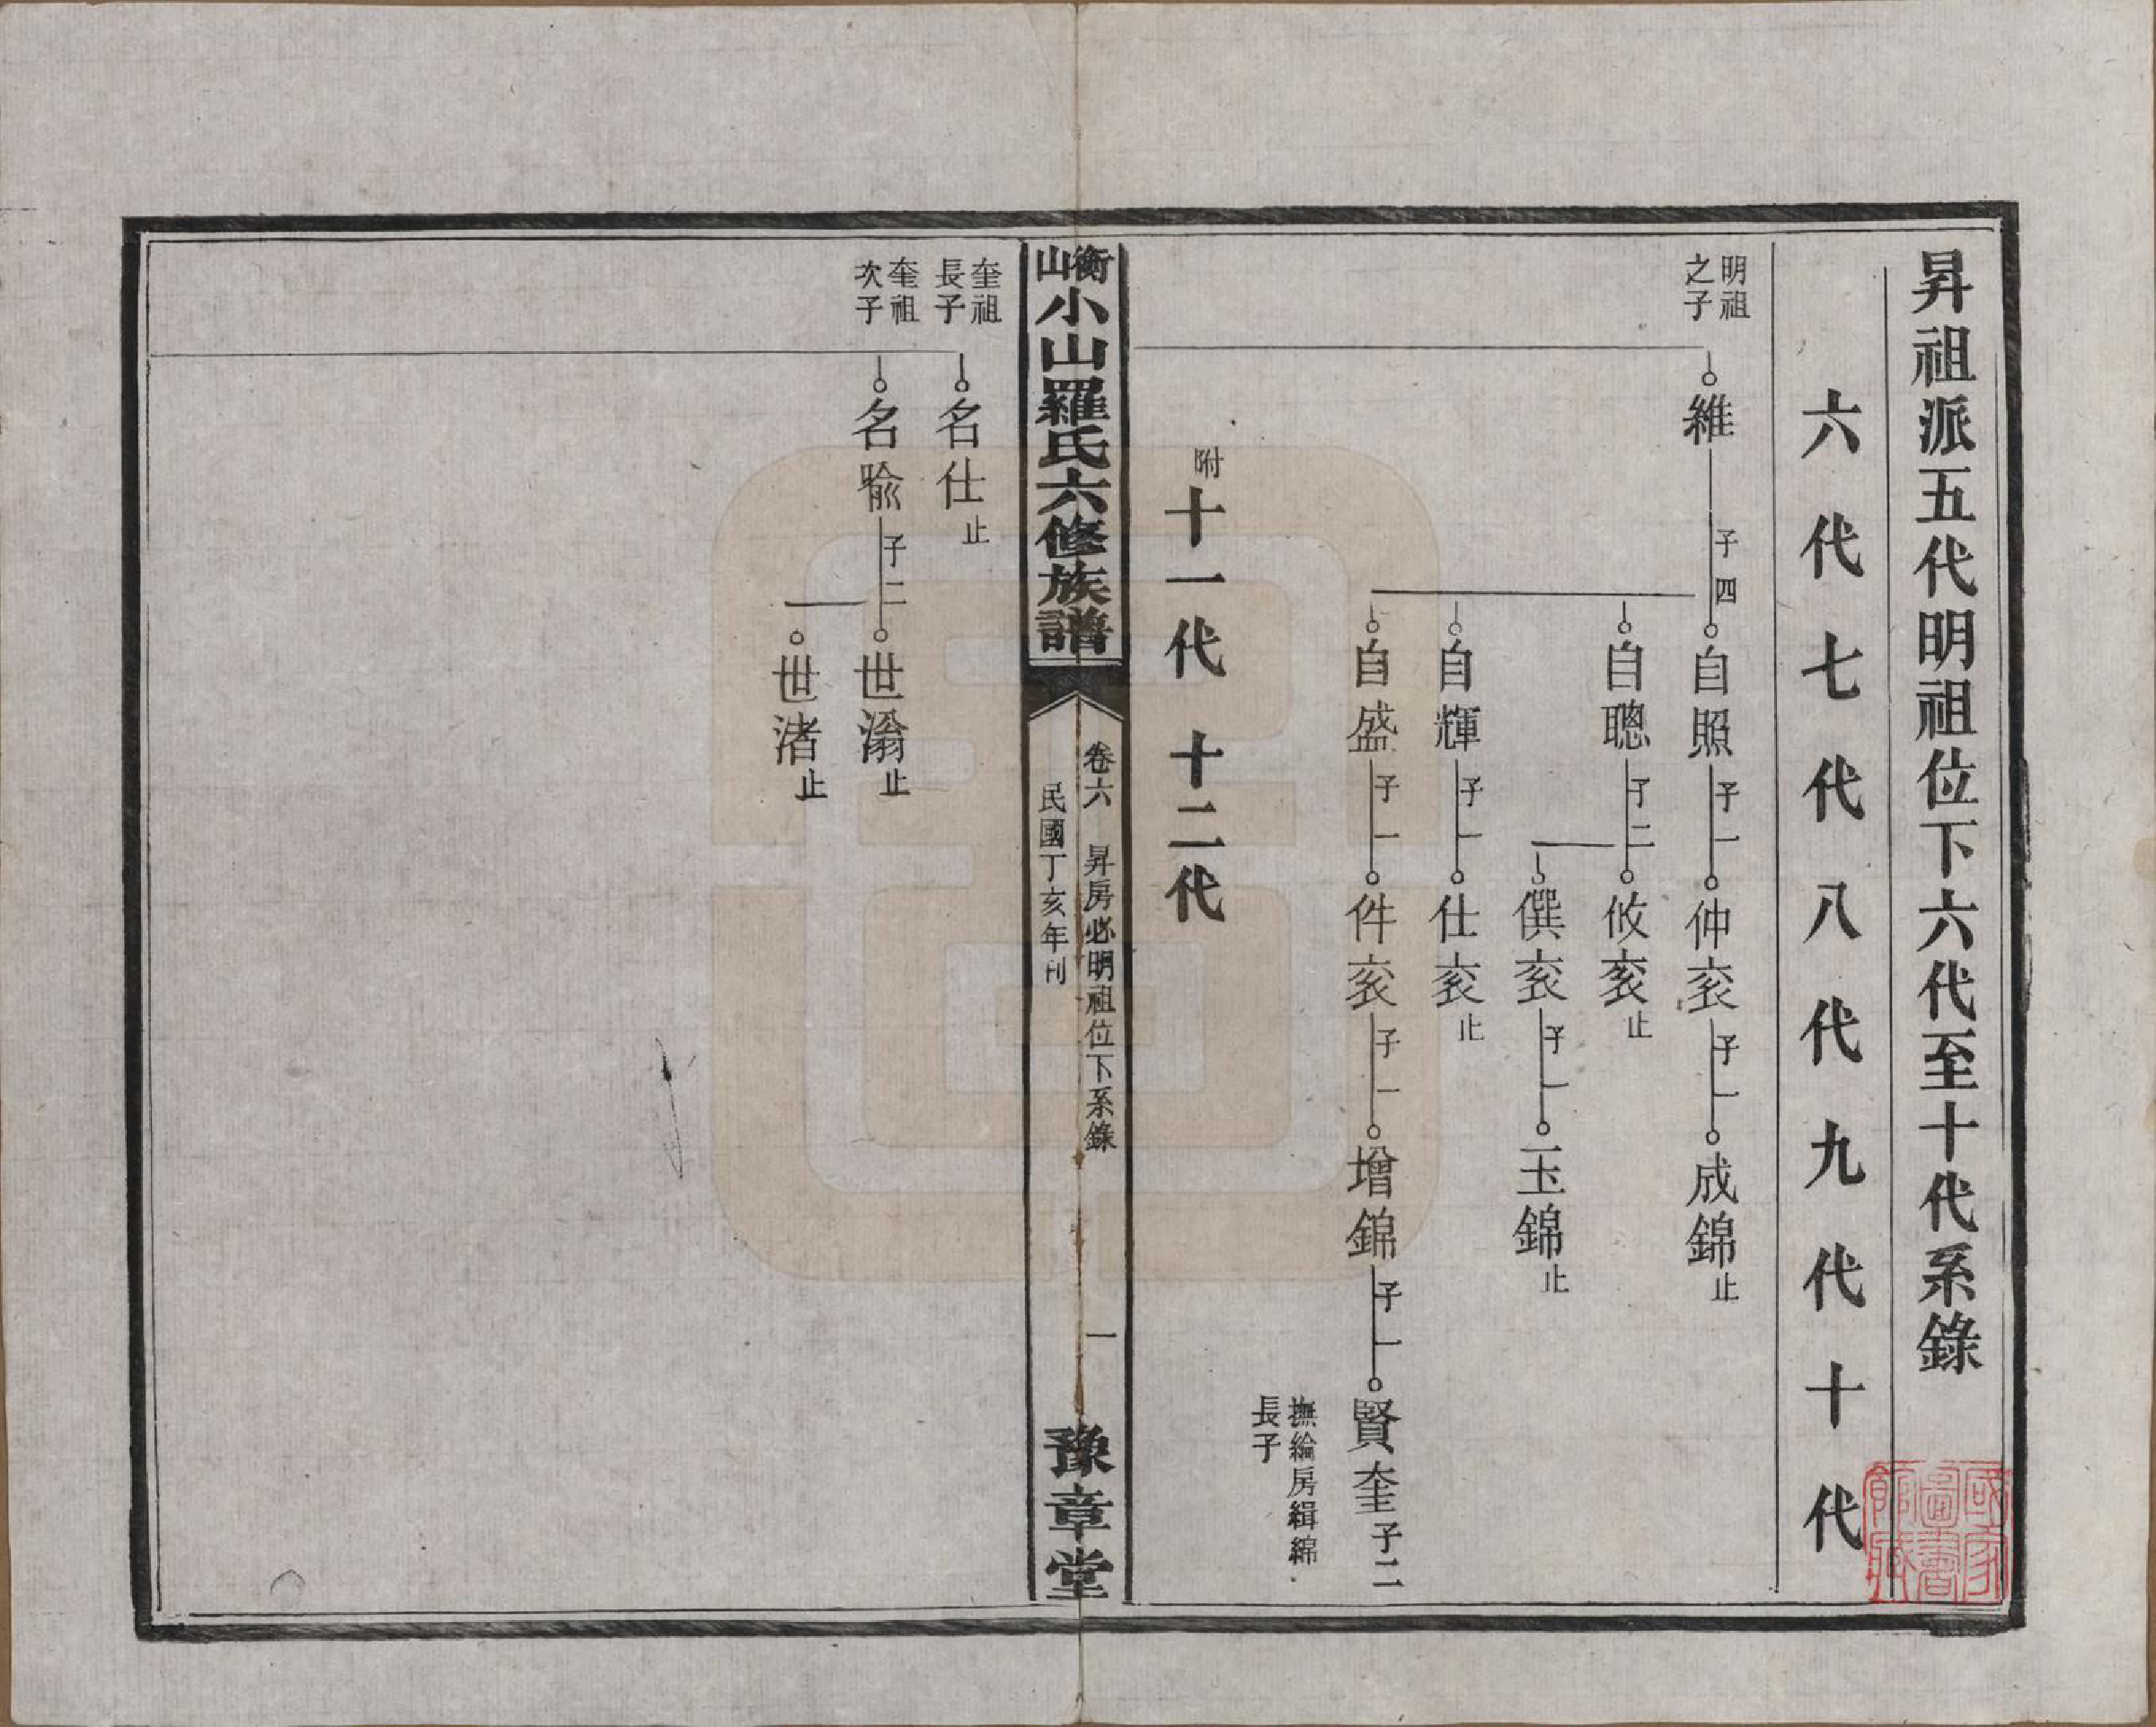 昇祖派五代明祖位下六代至十代系錄
六代七代八代九代十代
明祖
之子
維
子四
自照
子一
仲袤
子一
成錦止
自聰
子二
攸袤止
僎袤
子一
玉錦止
自輝
子一
仕袤止
自盛
子一
件袤
子一
增錦
子一
賢奎子二
撫綸房緝綿
長子
附十一代 十二代
衡山小山羅氏六修族譜
卷六 昇房必明祖位下系錄
民國丁亥年刊
一
豫章堂
奎祖
長子
名仕止
奎祖
次子
名喩
子二
世滃止
世渚止
國家圖書館藏